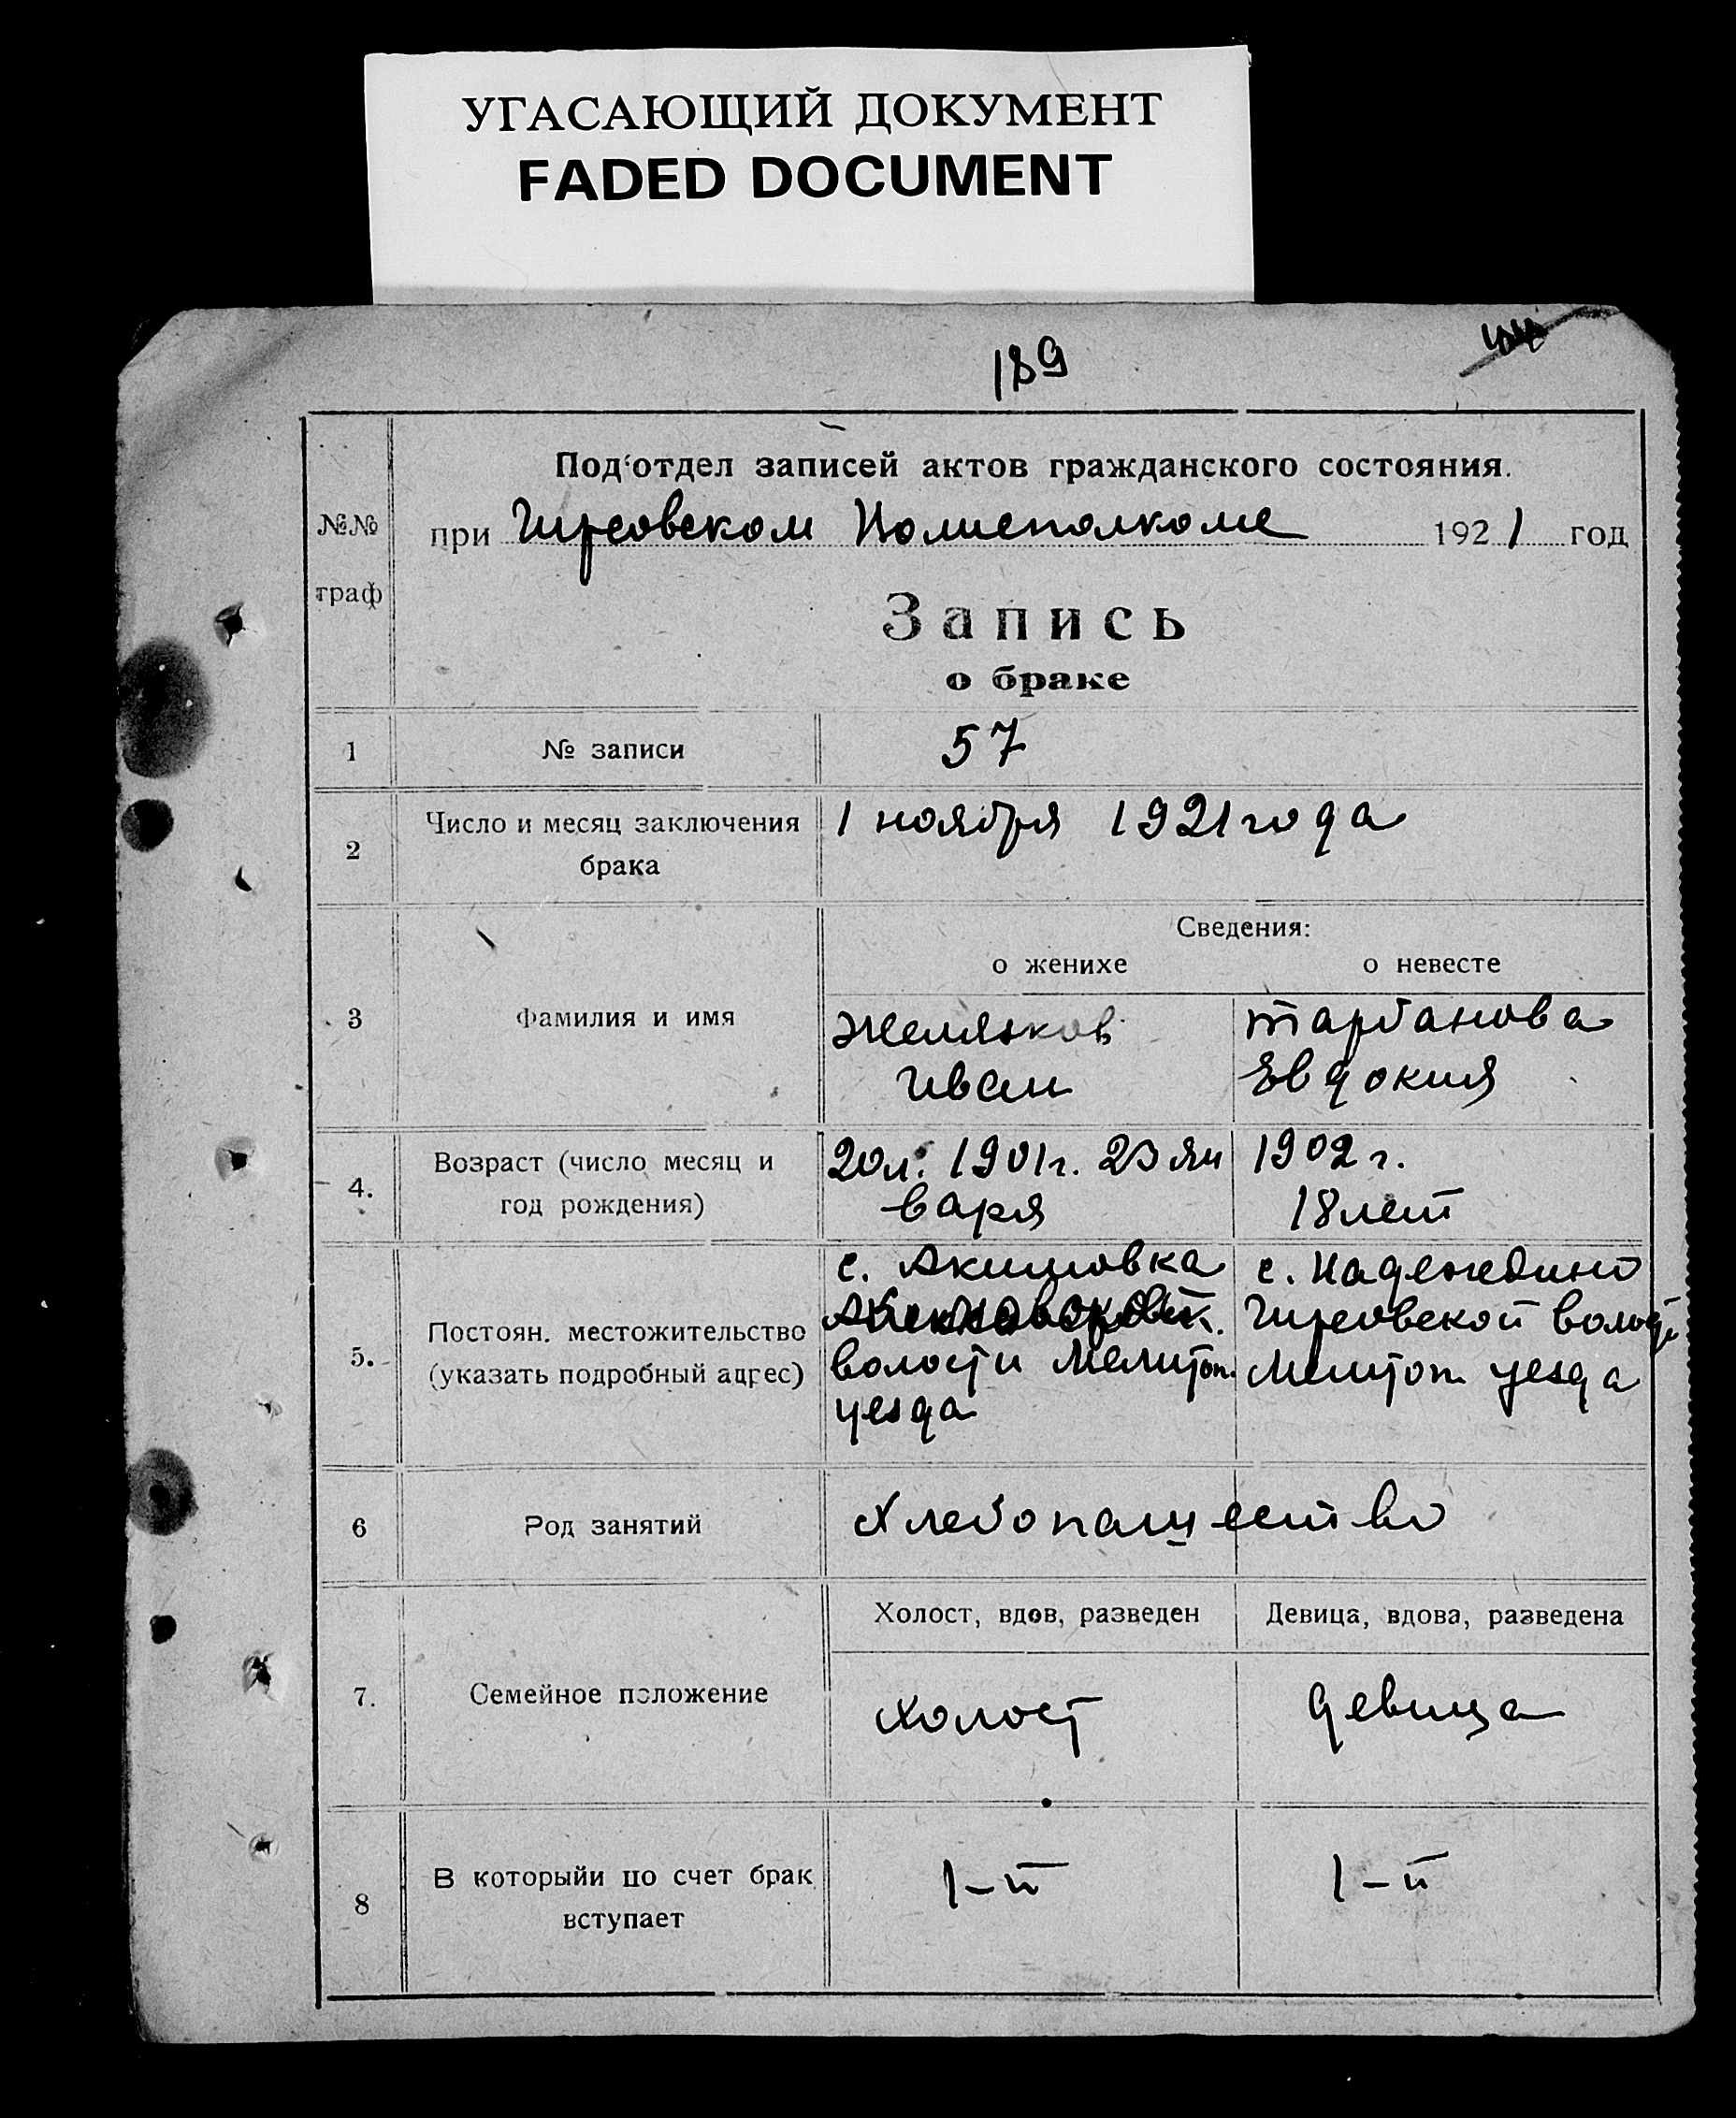 УГАСАЮЩИЙ ДОКУМЕНТ
FADED DOCUMENT
189
№№ граф
Подотдел записей актов гражданского состояния.
при Гирсовском 1921 год
Запись
о браке
1 № записи 57
2 Число и месяц заключения брака
1 ноября 1921 года
Сведения:
о женихе о невесте
3 Фамилия и имя
Желязков Тарбанова
Иван Евдокия
4. Возраст (число месяц и
год рождения)
20 л. 1901 г. 23 ян 1902 г.
варя 18 лет
5. Постоян. местожительство
(указать подробный адрес)
с. Акимовка с. Надеждино
Гирсовской волости
волости Мелитоп. Мелитоп. уезда
уезда
6 Род занятий Хлебопашество
Холост, вдов, разведен Девица, вдова, разведена
7. Семейное положение холост девица
8 В которыйи по счет брак
вступает
1-й 1-й